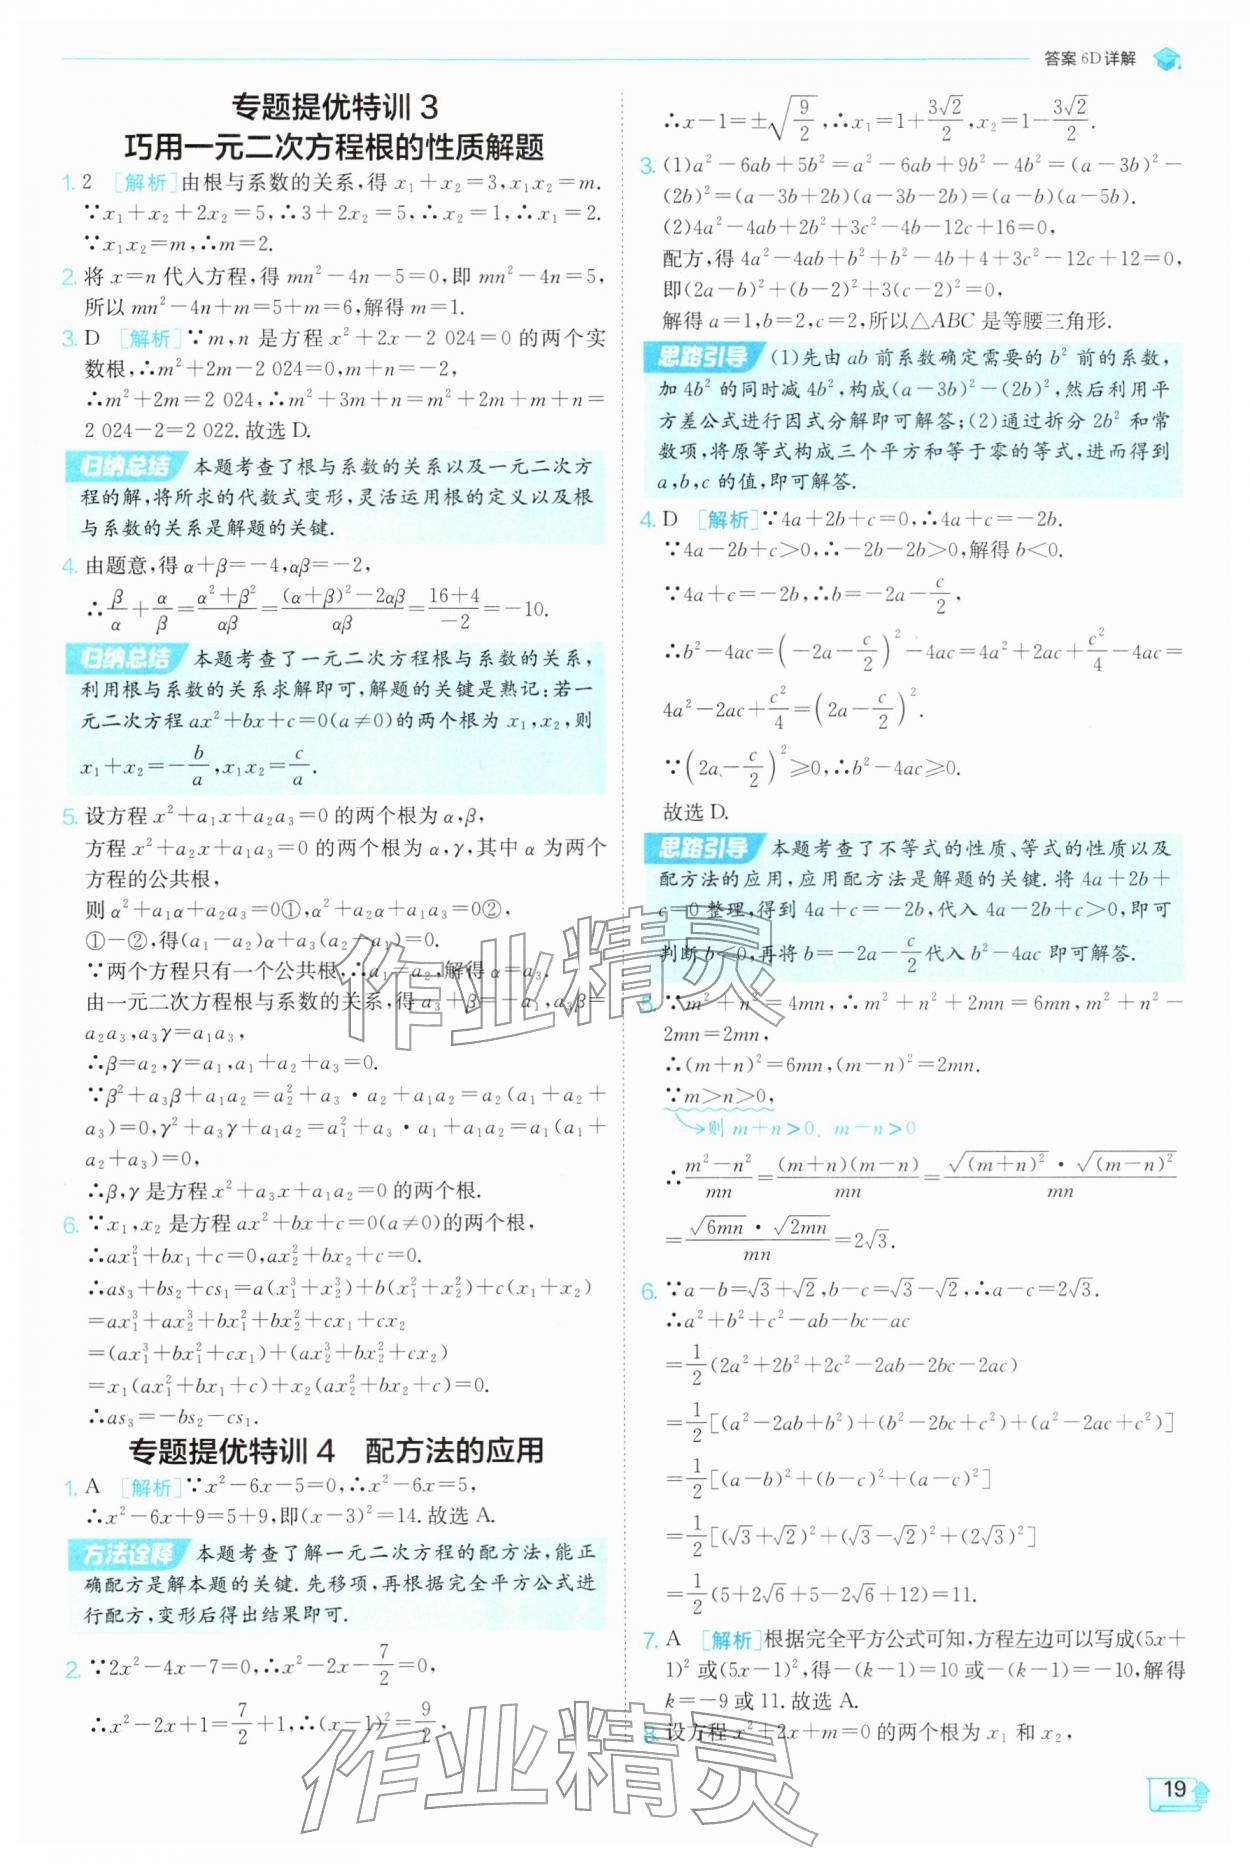 答案 6D 详解
专题提优特训 3
巧用一元二次方程根的性质解题
1. 2 [解析]由根与系数的关系,得 x₁+x₂=3,x₁x₂=m.
∵x₁+x₂+2x₂=5,∴3+2x₂=5,∴x₂=1,∴x₁=2.
∵x₁x₂=m,∴m=2.
2. 将 x=n 代入方程,得 mn²-4n-5=0,即 mn²-4n=5,
所以 mn²-4n+m=5+m=6,解得 m=1.
3. D [解析]∵m,n 是方程 x²+2x-2 024=0 的两个实
数根,∴m²+2m-2 024=0,m+n=-2,
∴m²+2m=2 024,∴m²+3m+n=m²+2m+m+n=
2 024-2=2 022.故选 D.
归纳总结 本题考查了根与系数的关系以及一元二次方
程的解,将所求的代数式变形,灵活运用根的定义以及根
与系数的关系是解题的关键.
4. 由题意,得 α+β=-4,αβ=-2,
∴β/α+α/β=(α²+β²)/αβ=((α+β)²-2αβ)/αβ=(16+4)/-2=-10.
归纳总结 本题考查了一元二次方程根与系数的关系,
利用根与系数的关系求解即可,解题的关键是熟记:若一
元二次方程 ax²+bx+c=0(a≠0)的两个根为 x₁,x₂,则
x₁+x₂=-b/a,x₁x₂=c/a.
5. 设方程 x²+a₁x+a₂a₃=0 的两个根为 α,β,
方程 x²+a₂x+a₁a₃=0 的两个根为 α,γ,其中 α 为两个
方程的公共根,
则 α²+a₁α+a₂a₃=0①,α²+a₂α+a₁a₃=0②,
①-②,得(a₁-a₂)α+a₃(a₂-a₁)=0.
∵两个方程只有一个公共根,∴a₁≠a₂,解得 α=a₃.
由一元二次方程根与系数的关系,得 a₃+β=-a₁,a₃β=
a₂a₃,a₃γ=a₁a₃,
∴β=a₂,γ=a₁,a₁+a₂+a₃=0.
∵β²+a₃β+a₁a₂=a₂²+a₃·a₂+a₁a₂=a₂(a₁+a₂+
a₃)=0,γ²+a₃γ+a₁a₂=a₁²+a₃·a₁+a₁a₂=a₁(a₁+
a₂+a₃)=0,
∴β,γ 是方程 x²+a₃x+a₁a₂=0 的两个根.
6. ∵x₁,x₂ 是方程 ax²+bx+c=0(a≠0)的两个根,
∴ax₁²+bx₁+c=0,ax₂²+bx₂+c=0.
∴as₃+bs₂+cs₁=a(x₁³+x₂³)+b(x₁²+x₂²)+c(x₁+x₂)
=ax₁³+ax₂³+bx₁²+bx₂²+cx₁+cx₂
=(ax₁³+bx₁²+cx₁)+(ax₂³+bx₂²+cx₂)
=x₁(ax₁²+bx₁+c)+x₂(ax₂²+bx₂+c)=0.
∴as₃=-bs₂-cs₁.
专题提优特训 4 配方法的应用
1. A [解析]∵x²-6x-5=0,∴x²-6x=5,
∴x²-6x+9=5+9,即(x-3)²=14.故选 A.
方法诠释 本题考查了解一元二次方程的配方法,能正
确配方是解本题的关键.先移项,再根据完全平方公式进
行配方,变形后得出结果即可.
2. ∵2x²-4x-7=0,∴x²-2x-7/2=0,
∴x²-2x+1=7/2+1,∴(x-1)²=9/2,
∴x-1=±√(9/2),∴x₁=1+3√2/2,x₂=1-3√2/2.
3. (1)a²-6ab+5b²=a²-6ab+9b²-4b²=(a-3b)²-
(2b)²=(a-3b+2b)(a-3b-2b)=(a-b)(a-5b).
(2)4a²-4ab+2b²+3c²-4b-12c+16=0,
配方,得 4a²-4ab+b²+b²-4b+4+3c²-12c+12=0,
即(2a-b)²+(b-2)²+3(c-2)²=0,
解得 a=1,b=2,c=2,所以△ABC 是等腰三角形.
思路引导 (1)先由 ab 前系数确定需要的 b² 前的系数,
加 4b² 的同时减 4b²,构成(a-3b)²-(2b)²,然后利用平
方差公式进行因式分解即可解答;(2)通过拆分 2b² 和常
数项,将原等式构成三个平方和等于零的等式,进而得到
a,b,c 的值,即可解答.
4. D [解析]∵4a+2b+c=0,∴4a+c=-2b.
∵4a-2b+c>0,∴-2b-2b>0,解得 b<0.
∵4a+c=-2b,∴b=-2a-c/2,
∴b²-4ac=(-2a-c/2)²-4ac=4a²+2ac+c²/4-4ac=
4a²-2ac+c²/4=(2a-c/2)².
∵(2a-c/2)²≥0,∴b²-4ac≥0.
故选 D.
思路引导 本题考查了不等式的性质、等式的性质以及
配方法的应用,应用配方法是解题的关键.将 4a+2b+
c=0 整理,得到 4a+c=-2b,代入 4a-2b+c>0,即可
判断 b<0,再将 b=-2a-c/2代入 b²-4ac 即可解答.
5. ∵m²+n²=4mn,∴m²+n²+2mn=6mn,m²+n²-
2mn=2mn,
∴(m+n)²=6mn,(m-n)²=2mn.
∵m>n>0,
则 m+n>0, m-n>0
∴(m²-n²)/mn=(m+n)(m-n)/mn=√(m+n)²·√(m-n)²/mn
=√6mn·√2mn/mn=2√3.
6. ∵a-b=√3+√2,b-c=√3-√2,∴a-c=2√3.
∴a²+b²+c²-ab-bc-ac
=1/2(2a²+2b²+2c²-2ab-2bc-2ac)
=1/2[(a²-2ab+b²)+(b²-2bc+c²)+(a²-2ac+c²)]
=1/2[(a-b)²+(b-c)²+(a-c)²]
=1/2[(√3+√2)²+(√3-√2)²+(2√3)²]
=1/2(5+2√6+5-2√6+12)=11.
7. A [解析]根据完全平方公式可知,方程左边可以写成(5x+
1)² 或(5x-1)²,得-(k-1)=10 或-(k-1)=-10,解得
k=-9 或 11.故选 A.
8. 设方程 x²+2x+m=0 的两个根为 x₁ 和 x₂,
作业精灵
作业精灵
19